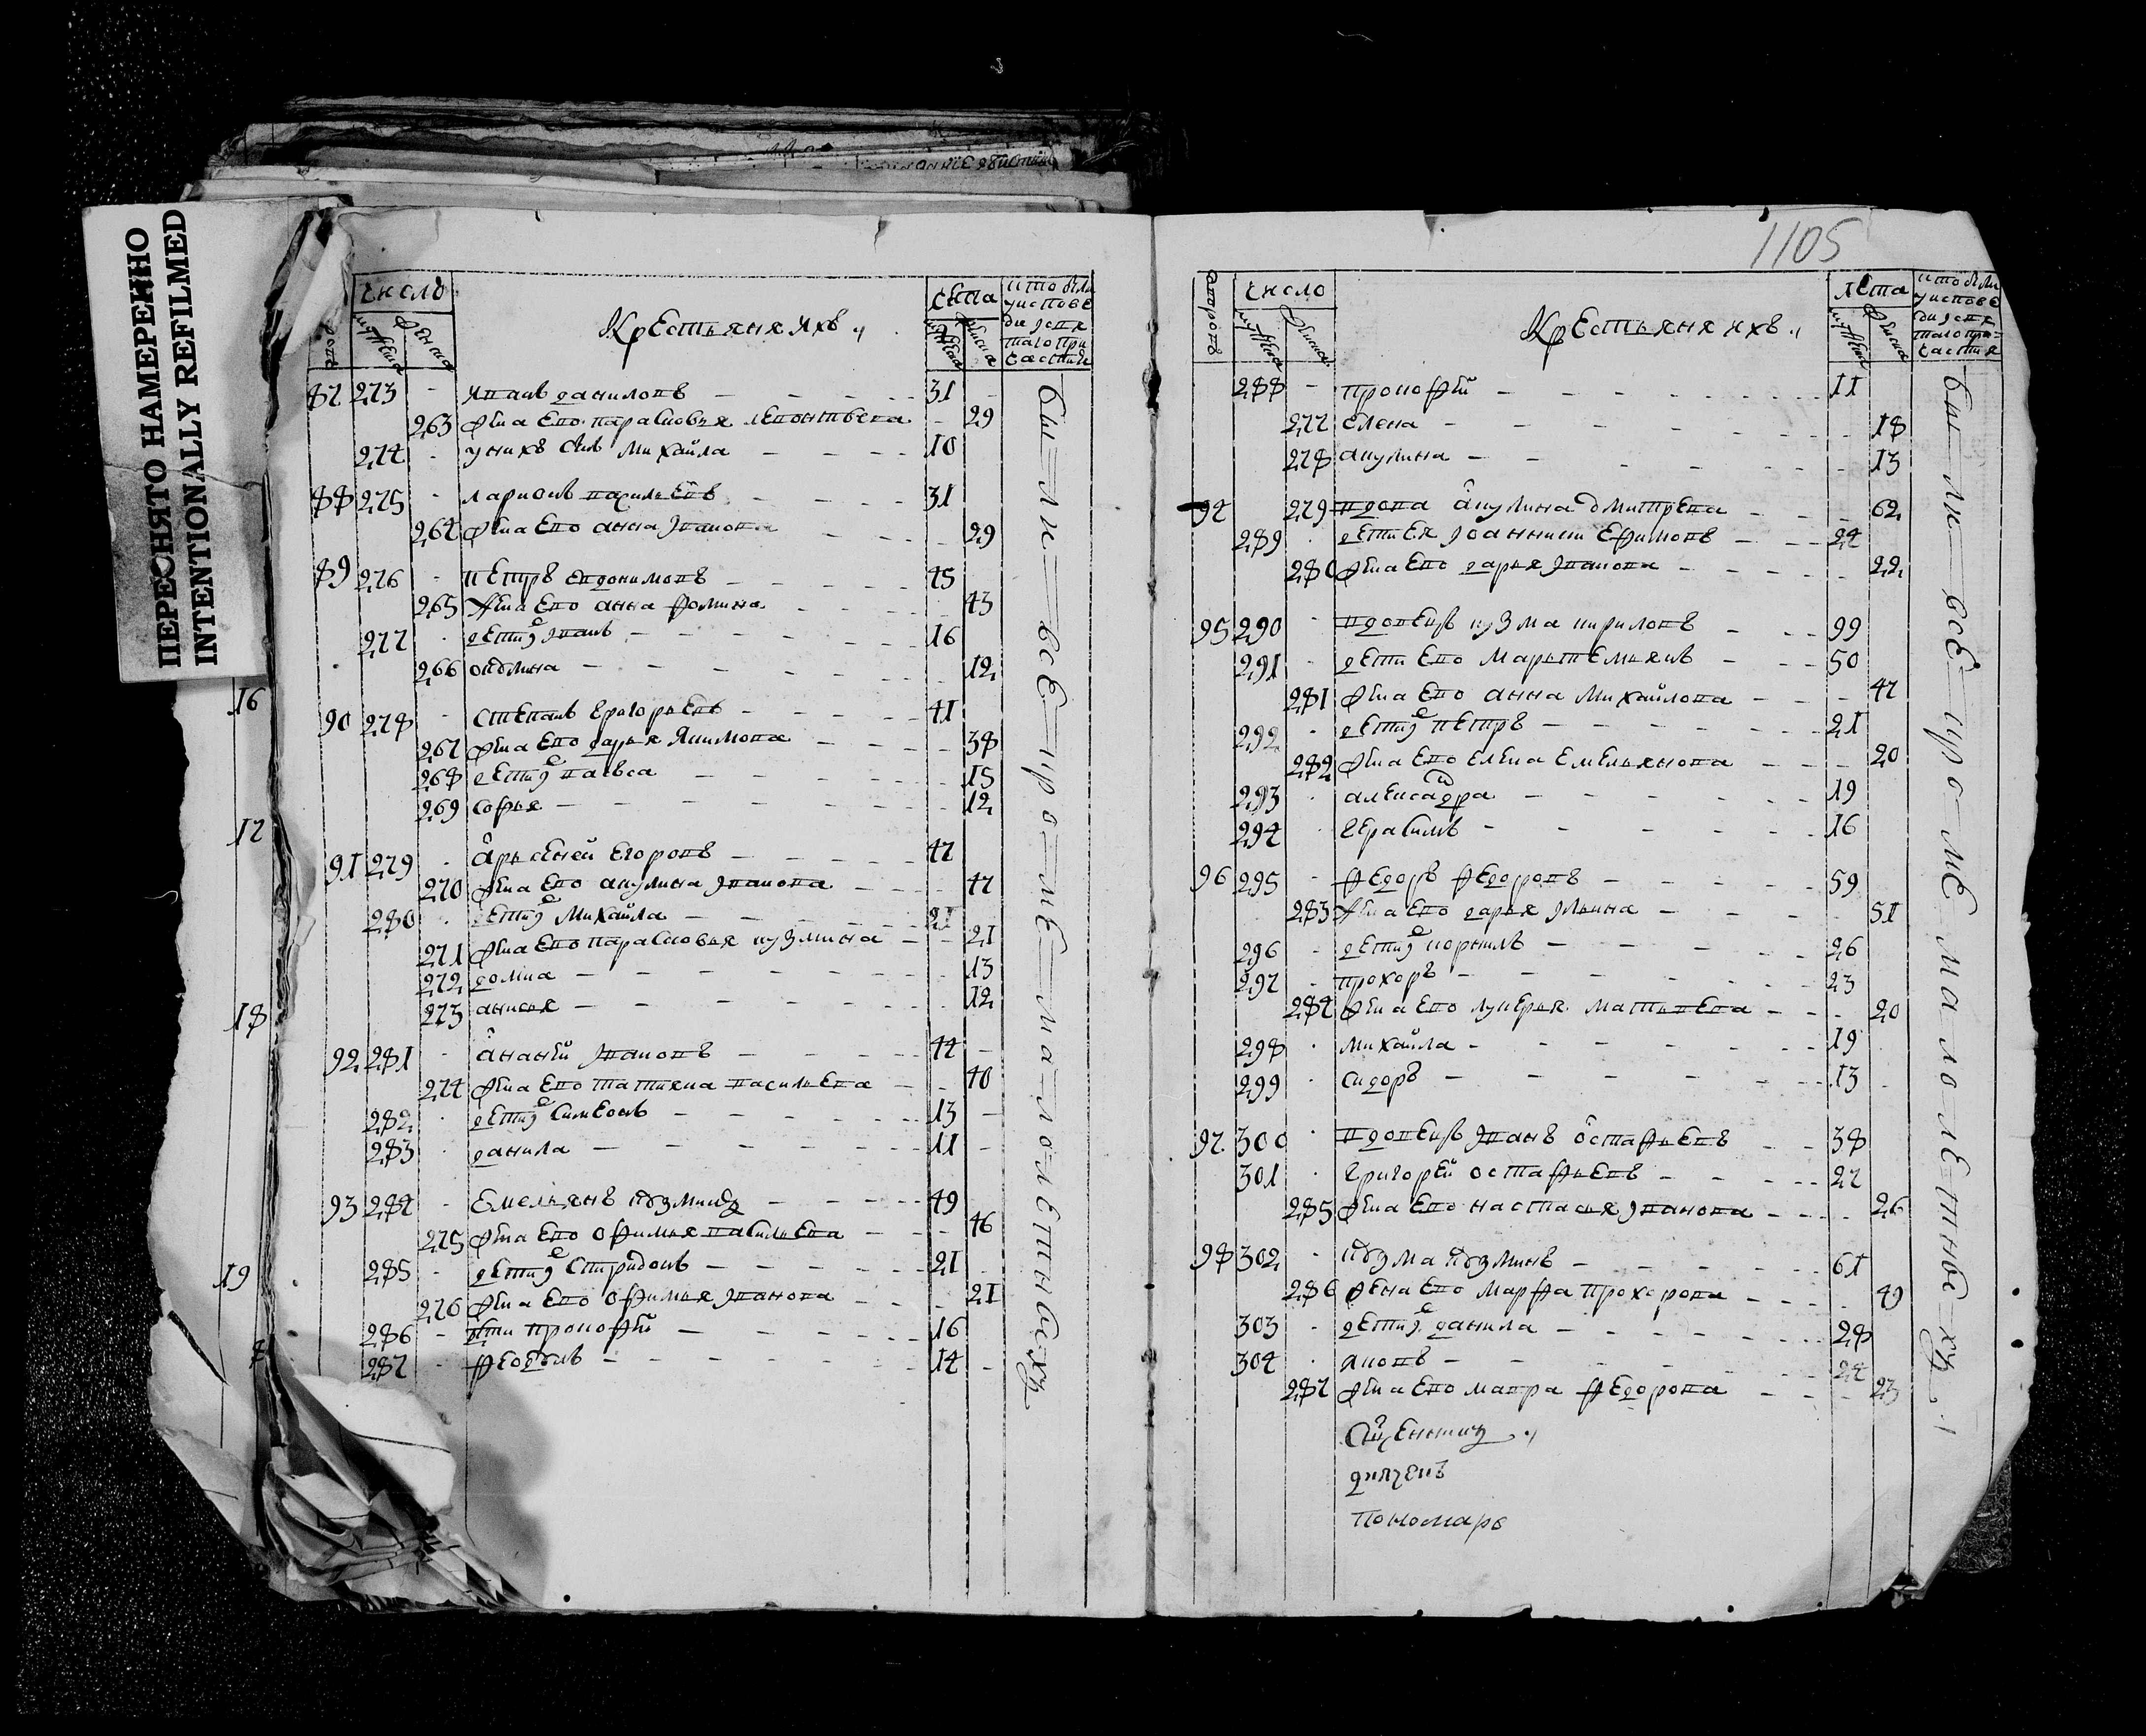 ПЕРЕСНЯТО НАМЕРЕННО
INTENTIONALLY REFILMED
число
Крестьяня ихъ
лета
что были у исповеди и святаго причастия
87 273 - Иванъ Даниловъ 31
263 жена его Парасковья Леонтьева 29
274 - у нихъ сынъ Михайла 10
88 275 - Ларионъ Васильевъ 31
264 жена его Анна Иванова 29
89 276 - Петръ Евдокимовъ 45
265 жена его Анна Фомина 43
277 дети их Иванъ 16
266 Окулина 12
90 278 - Степанъ Григорьевъ 41
267 жена его Дарья Якимова 38
268 дети их Павла 15
269 Софья 12
91 279 Арьсеней Егоровъ 47
270 жена его Акулина Иванова 47
280 дети их Михайла 21
271 жена его Парасковья Кузмина 21
272 Домна 13
273 Анисья 12
92 281 Ананей Ивановъ 44
274 жена его Татияна Васильева 40
282 дети их Симеонъ 13
283 Данила 11
93 284 - Емельянъ Кузминъ 49
275 жена его Офимья Васильева 46
285 дети их Спиридонъ 21
276 жена его Офимья Иванова 21
286 - дети Прокофей 16
287 - 14
бы-ли-все-кро-ме-ма-лолетныхъ
16
17
18
19
1105
дворовъ
число
Крестьяня ихъ
лета
что были у исповеди и святаго причастия
288 - Прокофей 11
277 Елена 18
278 Акулина 13
94 279 вдова Акулина Дмитрева 62
289 дети ея Иоанникий Ефимовъ 24
280 жена его Дарья Иванова 22
95 290 вдовецъ Кузма Кириловъ 99
291 дети его Мартемьянъ 50
281 жена его Анна Михайлова 47
292 дети их Петръ 21
282 жена его Елена Емельянова 20
293 Александра 19
294 Герасимъ 16
96 295 Федоръ Федоровъ 59
283 жена его Дарья Ильина 51
296 дети их Корнилъ 26
297 Прохоръ 23
284 жена его Лукерья Матвеева 20
298 Михайла 19
299 Сидоръ 13
97 300 вдовецъ Иванъ Остафьевъ 38
301 Григорей Остафьевъ 27
285 жена его Настасья Иванова 26
98 302 Кузма Кузминъ 61
286 жена его Марфа Прохорова 49
303 дети их Данила 28
304 Аковъ 24
287 жена его Мавра Федорова 23
бы-ли-все-кро-ме-ма-ло-летные-хъ
Священникъ
дьячекъ
пономарь